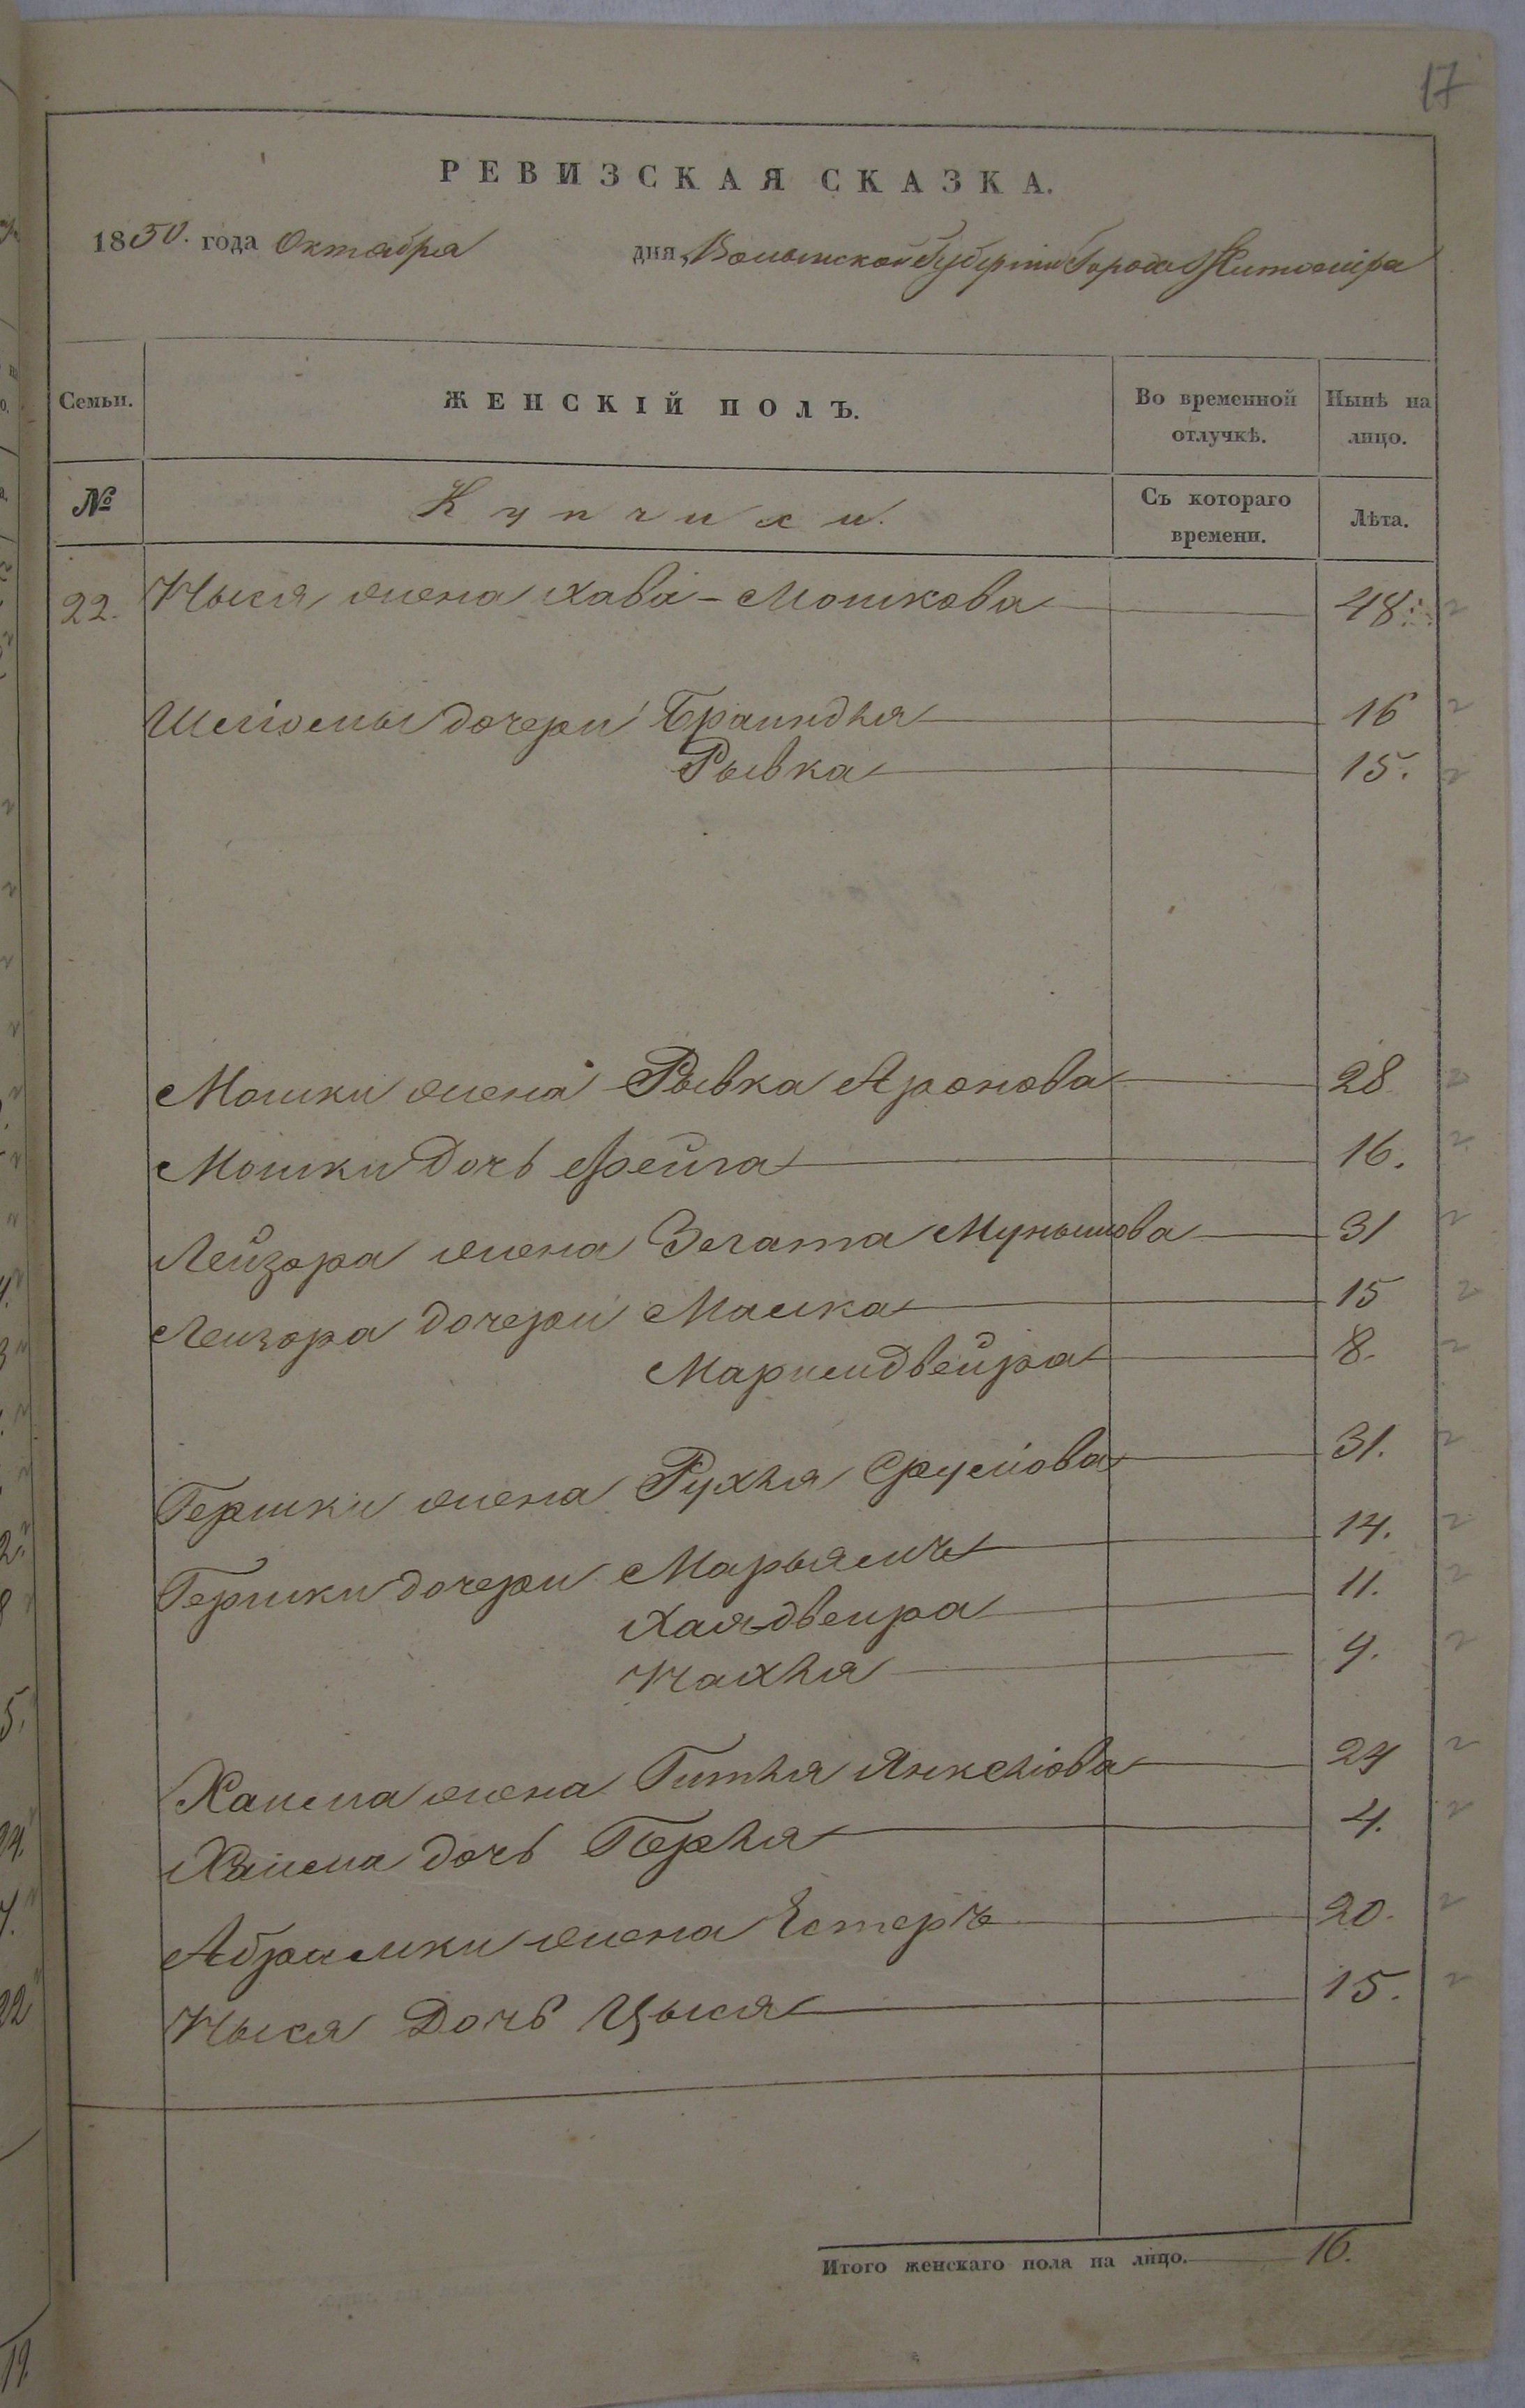 17
РЕВИЗСКАЯ СКАЗКА.
1850. года Октабра дня, Волынской Губерніи Города Житоміра
Семьи. ЖЕНСКІЙ ПОЛЪ. Во временной отлучкѣ. Нынѣ на лицо.
№ Купчихи. Съ котораго времени. Лѣта.
22. Ныся жена Хава-Мошкова 48.
Шліомы дочери Браиндля 16
Рывка 15.
Мошки жена Рывка Аронова 28
Мошки дочь Фейга 16.
Лейзора жена Злата Мунышова 31
Лейзора дочери Малка 15
Мариамдвейра 8.
Гершки жена Рухля Сруліова 31.
Гершки дочери Марьямъ 14.
Хая-двеира 11.
Нахля 9.
Хаима жена Гитля Янкеліова 24
Хаима дочь Перля 4.
Абрамки жена Естеръ 20.
Ныся Дочь Цыся 15.
Итого женскаго пола на лицо. 16.